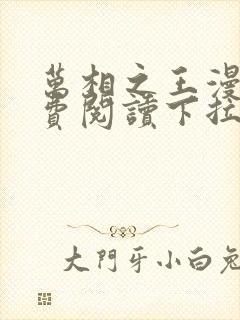 萬相之王漫
費閱讀下拉
大門牙小白兔